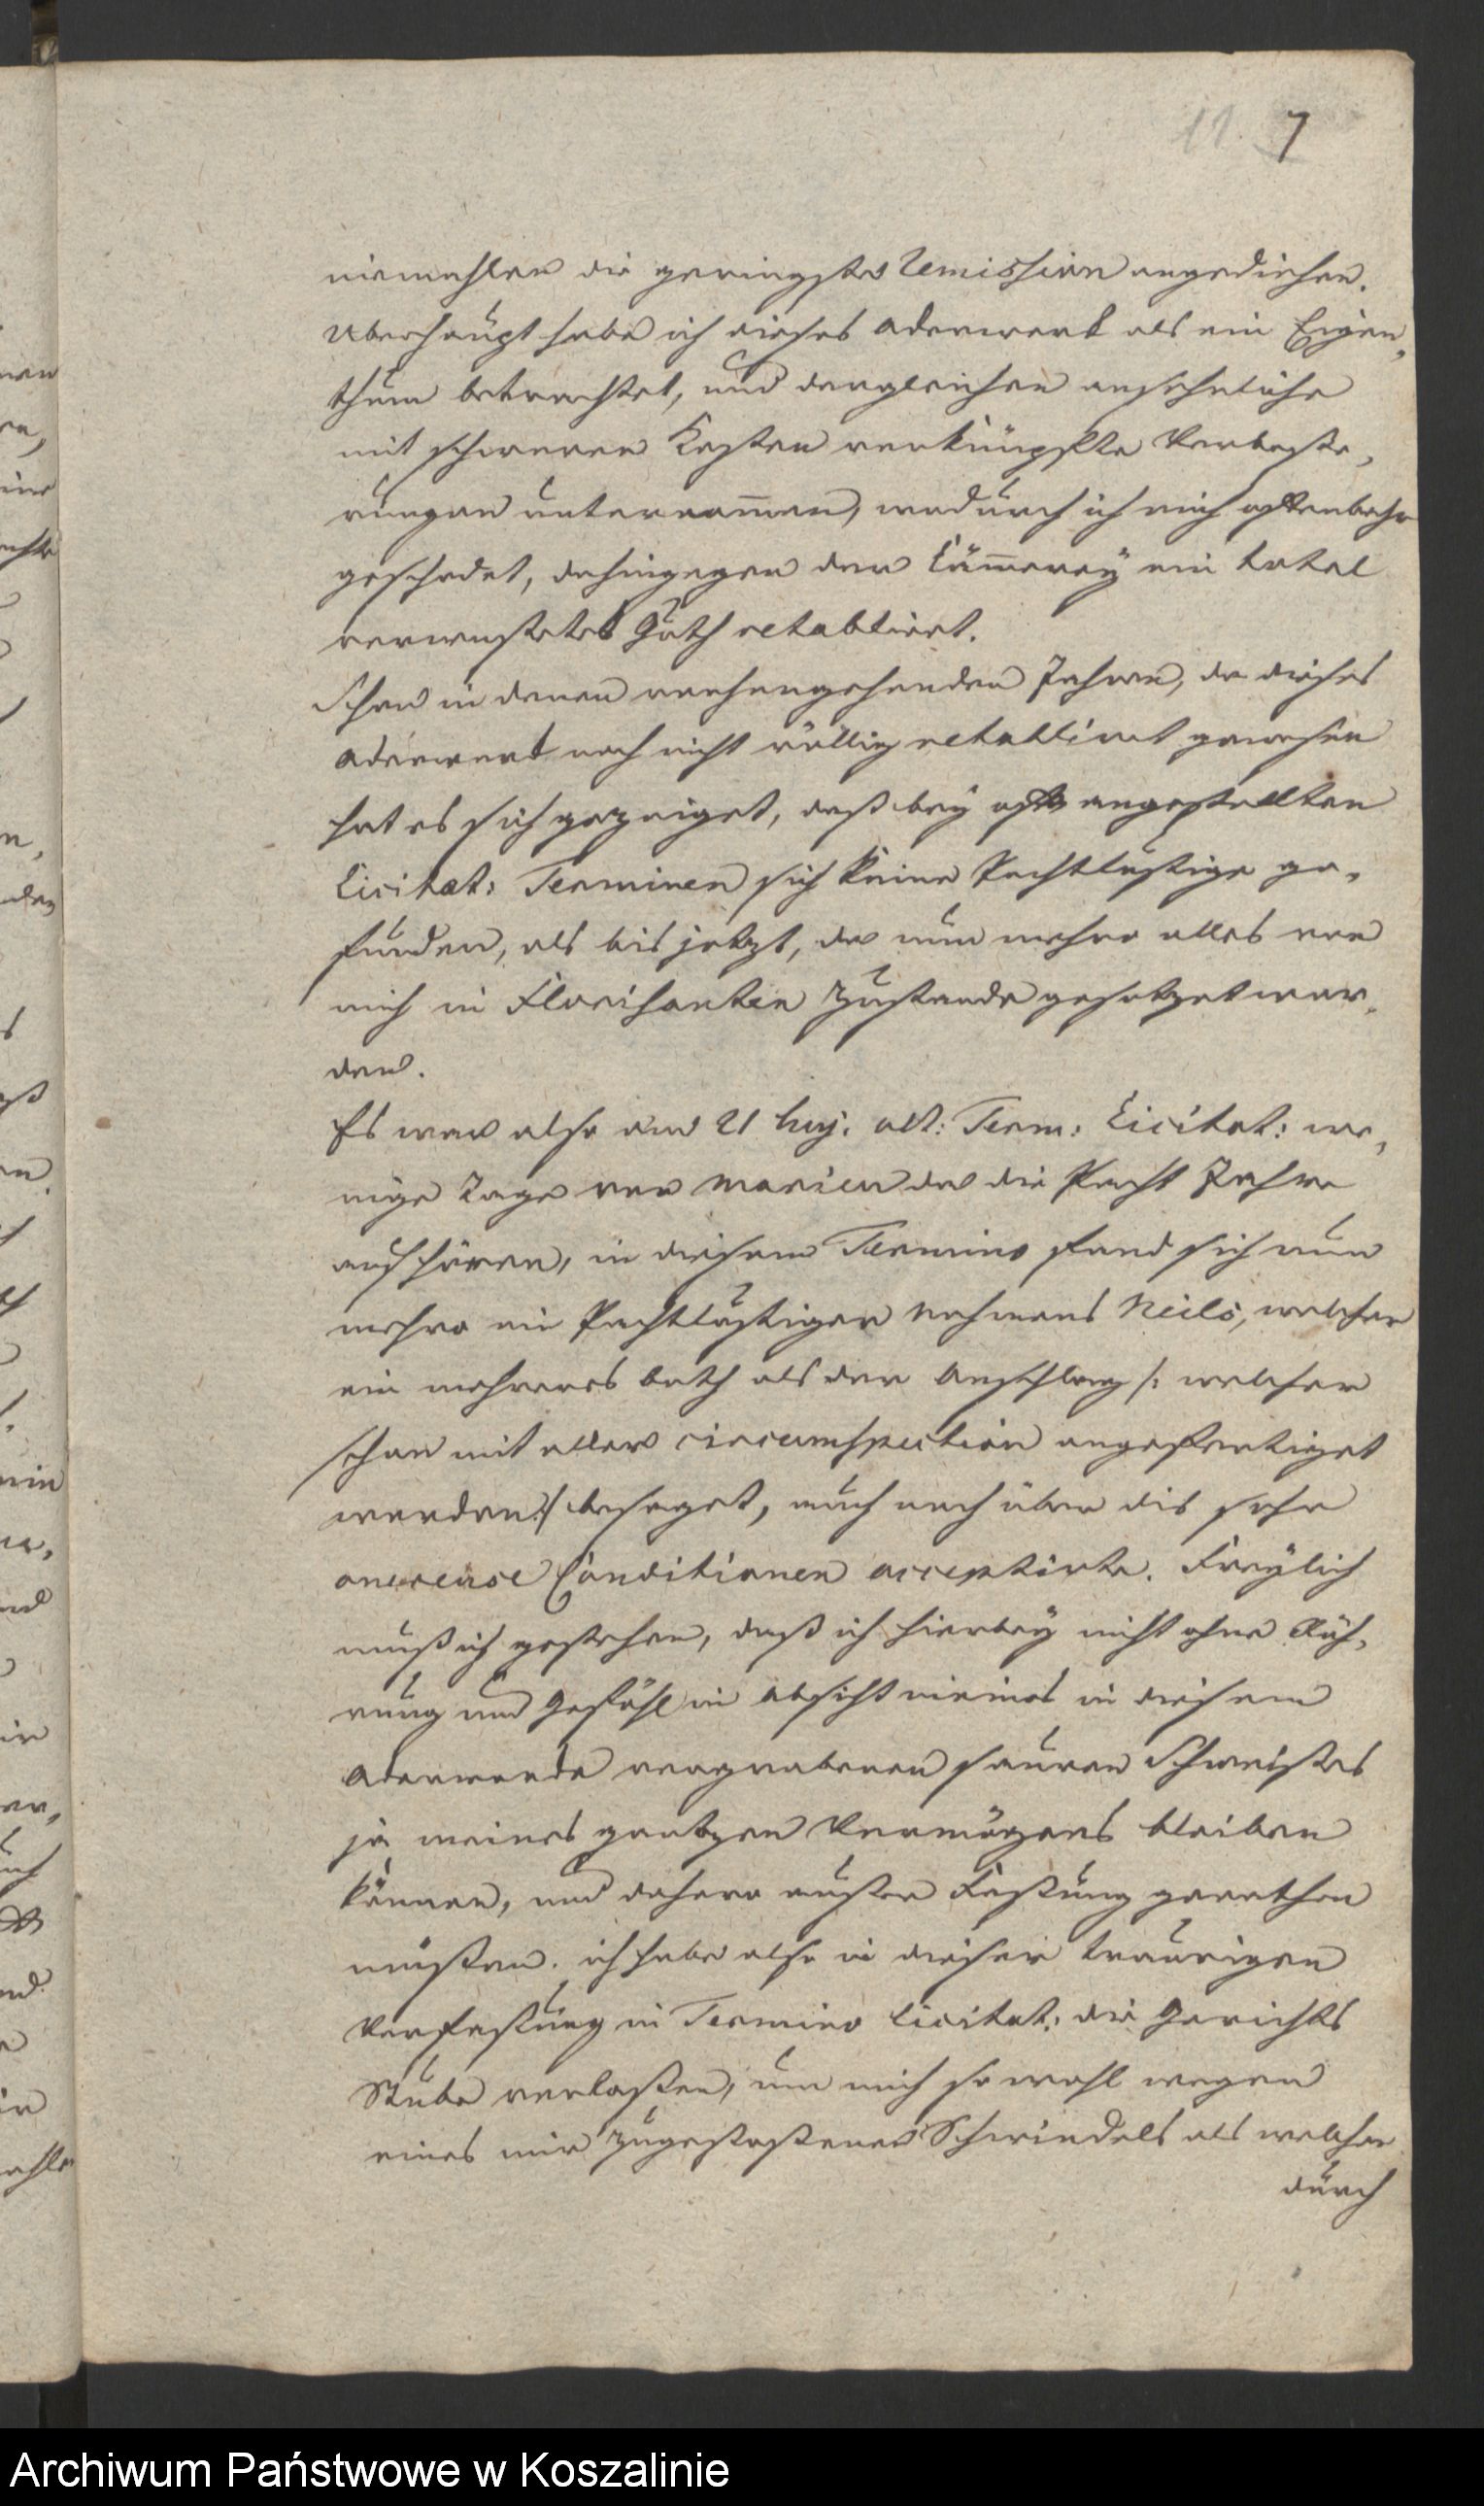 11. 7
niemahlen die geringste Remission angediehen.
Uberhaupt habe ich dieses Ackerwerk als ein Eigen-
thum betrachtet, und dergleichen ansehnliche
mit schweren Kosten verknüpfte Verbeße-
rungen unternom̄en, wodurch ich mich offenbahr
geschadet, dahingegen der Cäm̄erey ein total
verwüstetes Guth retablirt.
Schon in denen vorhergehenden Jahren, da dieses
Ackerwerk noch nicht völlig retablirt gewesen
hat es sich gezeiget, daß bey offt angestellten
Licitat: Terminen sich keine Pachtlustige ge-
funden, als bis jetzt, da nun mehro alles von
mich in Florisanten Zustande gesetzet wor-
den.
Es war also am 21 huj. alß: Term: Licitat: we-
nige Tage vor Marien da die Pacht Jahre
aufhören, in diesem Termino fand sich nun
mehro ein Pachtlustiger Nahmens welcher
ein mehreres both als der Anschlag /: welcher
schon mit aller circumspection angefertiget
worden :/ besaget, auch noch über dis sehr
onereuse Conditionen acceptirte. Freylich
muß ich gestehen, daß ich hierbey nicht ohne Rüh-
rung und Gefühl in Absicht meines in diesem
Ackerwerke vergrabenen sauren Schweißes
ja meines gantzen Vermögens bleiben
können, und dahero außer Faßung gerathen
müßen. ich habe also in dieser traurigen
Verfaßung in Termino licitat: die Gerichts
Stube verlaßen, um mich so wohl wegen
eines mir zugestoßenen Schwindels als welcher
durch
Archiwum Państwowe w Koszalinie